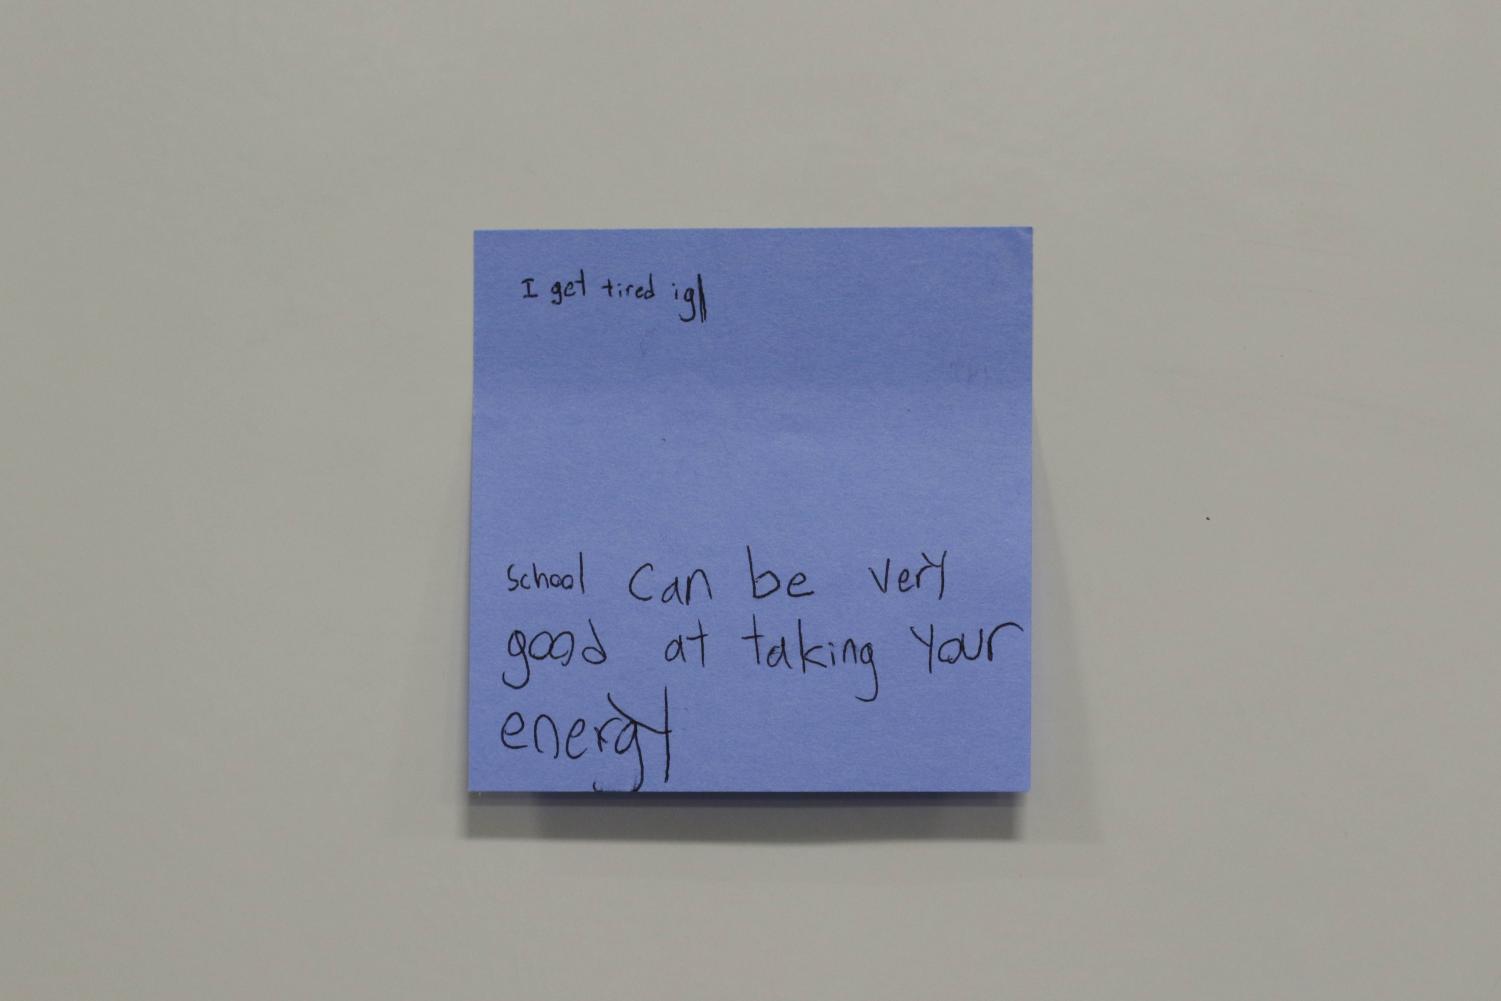 I get tired ig
school can be very
good at taking your
energy